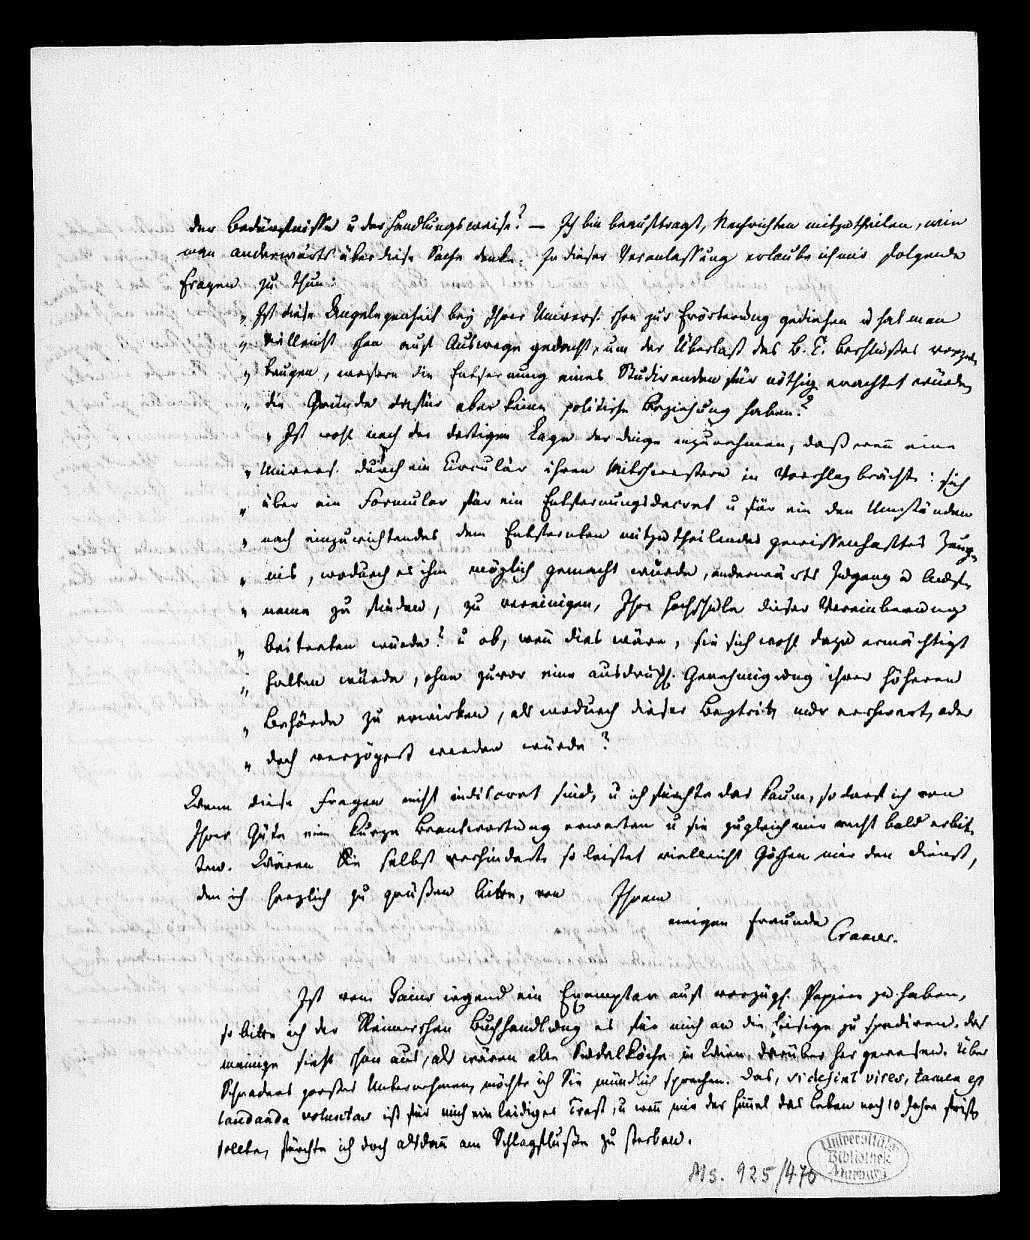 der Bedürfnisse u der Handlungsweise? – Ich bin beauftragt, Nachrichten mitzutheilen, wie
man anderwärts über diese Sache denke. In dieser Veranlassung erlaube ich mir folgende
Fragen zu thun:
„ Ist diese Angelegenheit bey Ihrer Univers. schon zur Erörterung gediehen u hat man
„ vielleicht schon auf Auswege gedacht, um der Überlast des B. T. Beschlußes vorzu-
„ beugen, wofern die Entfernung eines Studirenden für nöthig erachtet würde,
„ die Gründe dafür aber keine politische Beziehung haben?
„ Ist wohl nach der dortigen Lage der Dinge anzunehmen, daß wenn eine
„ Univers. durch ein Circulär ihren Mitschwestern in Vorschlag brächte: sich
„ über ein Formular für ein Entfernungsdecret u für ein den Umständen
„ nach einzurichtendes, dem Entfernten mitzutheilendes gewissenhaftes Zeug-
„ nis, wodurch es ihm möglich gemacht würde, anderwärts Zugang u Auf-
„ nahme zu finden, zu vereinigen, Ihre Hochschule dieser Vereinbarung
„ beitreten würde? u ob, wenn dies wäre, sie sich wohl dazu ermächtigt
„ halten würde, ohne zuvor eine ausdrückl. Genehmigung ihrer höheren
„ Behörde zu erwirken, als wodurch dieser Beytritt nur erschwert, oder
„ doch verzögert werden würde?
Wenn diese Fragen nicht indiscret sind, u ich fürchte das kaum, so darf ich von
Ihrer Güte eine kurze Beantwortung erwarten u sie zugleich mir recht bald erbit-
ten. Wären Sie selbst verhindert, so leistet vielleicht Göschen mir den Dienst,
den ich herzlich zu grüßen bitte, von Ihrem
ewigen Freunde
Cramer.
Ist vom Gaius irgend ein Exemplar auf vorzügl. Papier zu haben,
so bitte ich der Reimerschen Buchhandlung es für mich an die hiesige zu spediren. das
meinige sieht schon aus, als wären alle Sudelköche in Wien darüber her gewesen. Über
Schraders großes Unternehmen möchte ich Sie mündlich sprechen. Das, si desint vires, tamen est
laudanda voluntas ist für mich ein leidiger Trost, u wenn mir der Himmel das Leben noch 10 Jahre fristen
sollte, fürchte ich doch alsdann am Schlagfluße zu sterben.
Ms. 925/470
Universitäts-
Bibliothek
Marburg